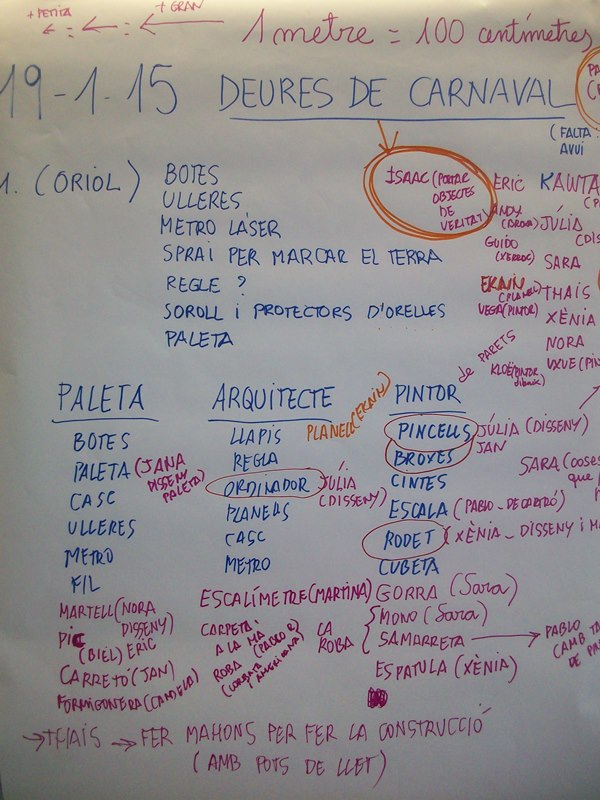 + PETITA + GRAN
1 metre = 100 centímetres
19-1-15 DEURES DE CARNAVAL
(FALTA:
AVUI
1. (ORIOL)
BOTES
ULLERES
METRO LÁSER
SPRAI PER MARCAR EL TERRA
REGLE ?
SOROLL I PROTECTORS D'ORELLES
PALETA
ISAAC (PORTAR
OBJECTES
DE
VERITAT)
ERIC
ANDY
(BROXA)
GUIDO
(XERRAC)
EKAIN
(PLANELL)
VEGA (PINTOR)
KAWTA
JÚLIA
(DIS
SARA
THAÍS
XÈNIA
NORA
UXUE (PIN
de PARETS
KLOË (PINTOR
dibuix)
PALETA
BOTES
PALETA (JANA
DISSENY
PALETA)
CASC
ULLERES
METRO
FIL
MARTELL (NORA
DISSENY)
PIC ERIC
(BIEL)
CARRETÓ (JAN)
FORMIGONERA (CANDELA)
ARQUITECTE
LLAPIS
PLANELL (EKAIN)
REGLA
ORDINADOR JÚLIA
(DISSENY)
PLANELLS
CASC
METRO
ESCALÍMETRE (MARTINA)
CARPETA
A LA MÀ
ROBA (PABLO R)
(CORBATA
I AMERICANA)
PINTOR
PINCELLS JÚLIA (DISSENY)
BROXES JAN
CINTES
SARA (COSES
que
ESCALA (PABLO - DE CARTRÓ)
RODET (XÈNIA - DISSENY i
CUBETA
GORRA (Sara)
LA
ROBA
MONO (Sara)
SAMARRETA → PABLO
CAMB
DE
ESPATULA (XÈNIA)
→ THAÍS → FER MAHONS PER FER LA CONSTRUCCIÓ
(AMB POTS DE LLET)